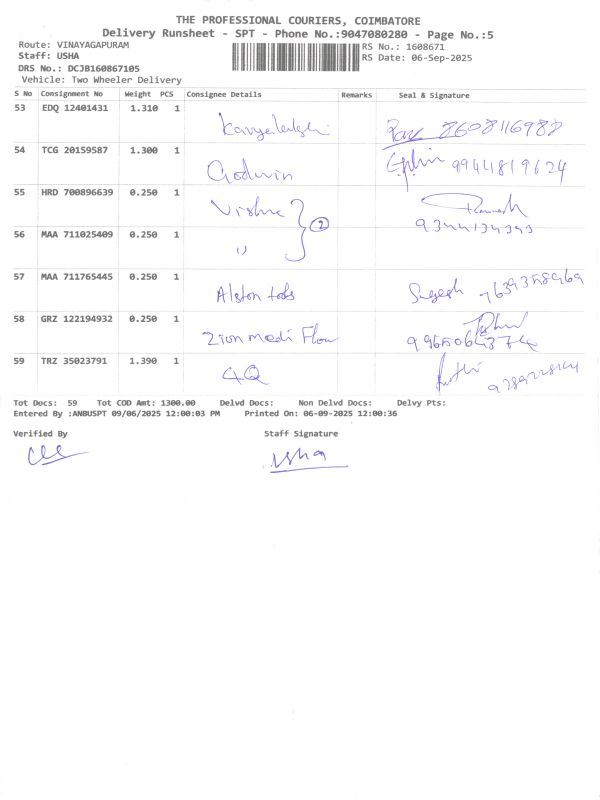 THE PROFESSIONAL COURIERS, COIMBATORE
Delivery Runsheet - SPT - Phone No.:9047080280 - Page No.:5
Route: VINAYAGAPURAM
Staff: USHA
DRS No.: DCJB160867105
Vehicle: Two Wheeler Delivery
RS No.: 1608671
RS Date: 06-Sep-2025
S No Consignment No Weight PCS Consignee Details Remarks Seal & Signature
53 EDQ 12401431 1.310 1 8608116988
54 TCG 20159587 1.300 1 Godwin 9944819624
55 HRD 700896639 0.250 1 Vishnu 2 Ramesh 9344134343
56 MAA 711025409 0.250 1 "
57 MAA 711765445 0.250 1 Alston
58 GRZ 122194932 0.250 1 Zion medi Flow
59 TRZ 35023791 1.390 1 4Q
Tot Docs: 59 Tot COD Amt: 1300.00 Delvd Docs: Non Delvd Docs: Delvy Pts:
Entered By :ANBUSPT 09/06/2025 12:00:03 PM Printed On: 06-09-2025 12:00:36
Verified By Staff Signature
usha